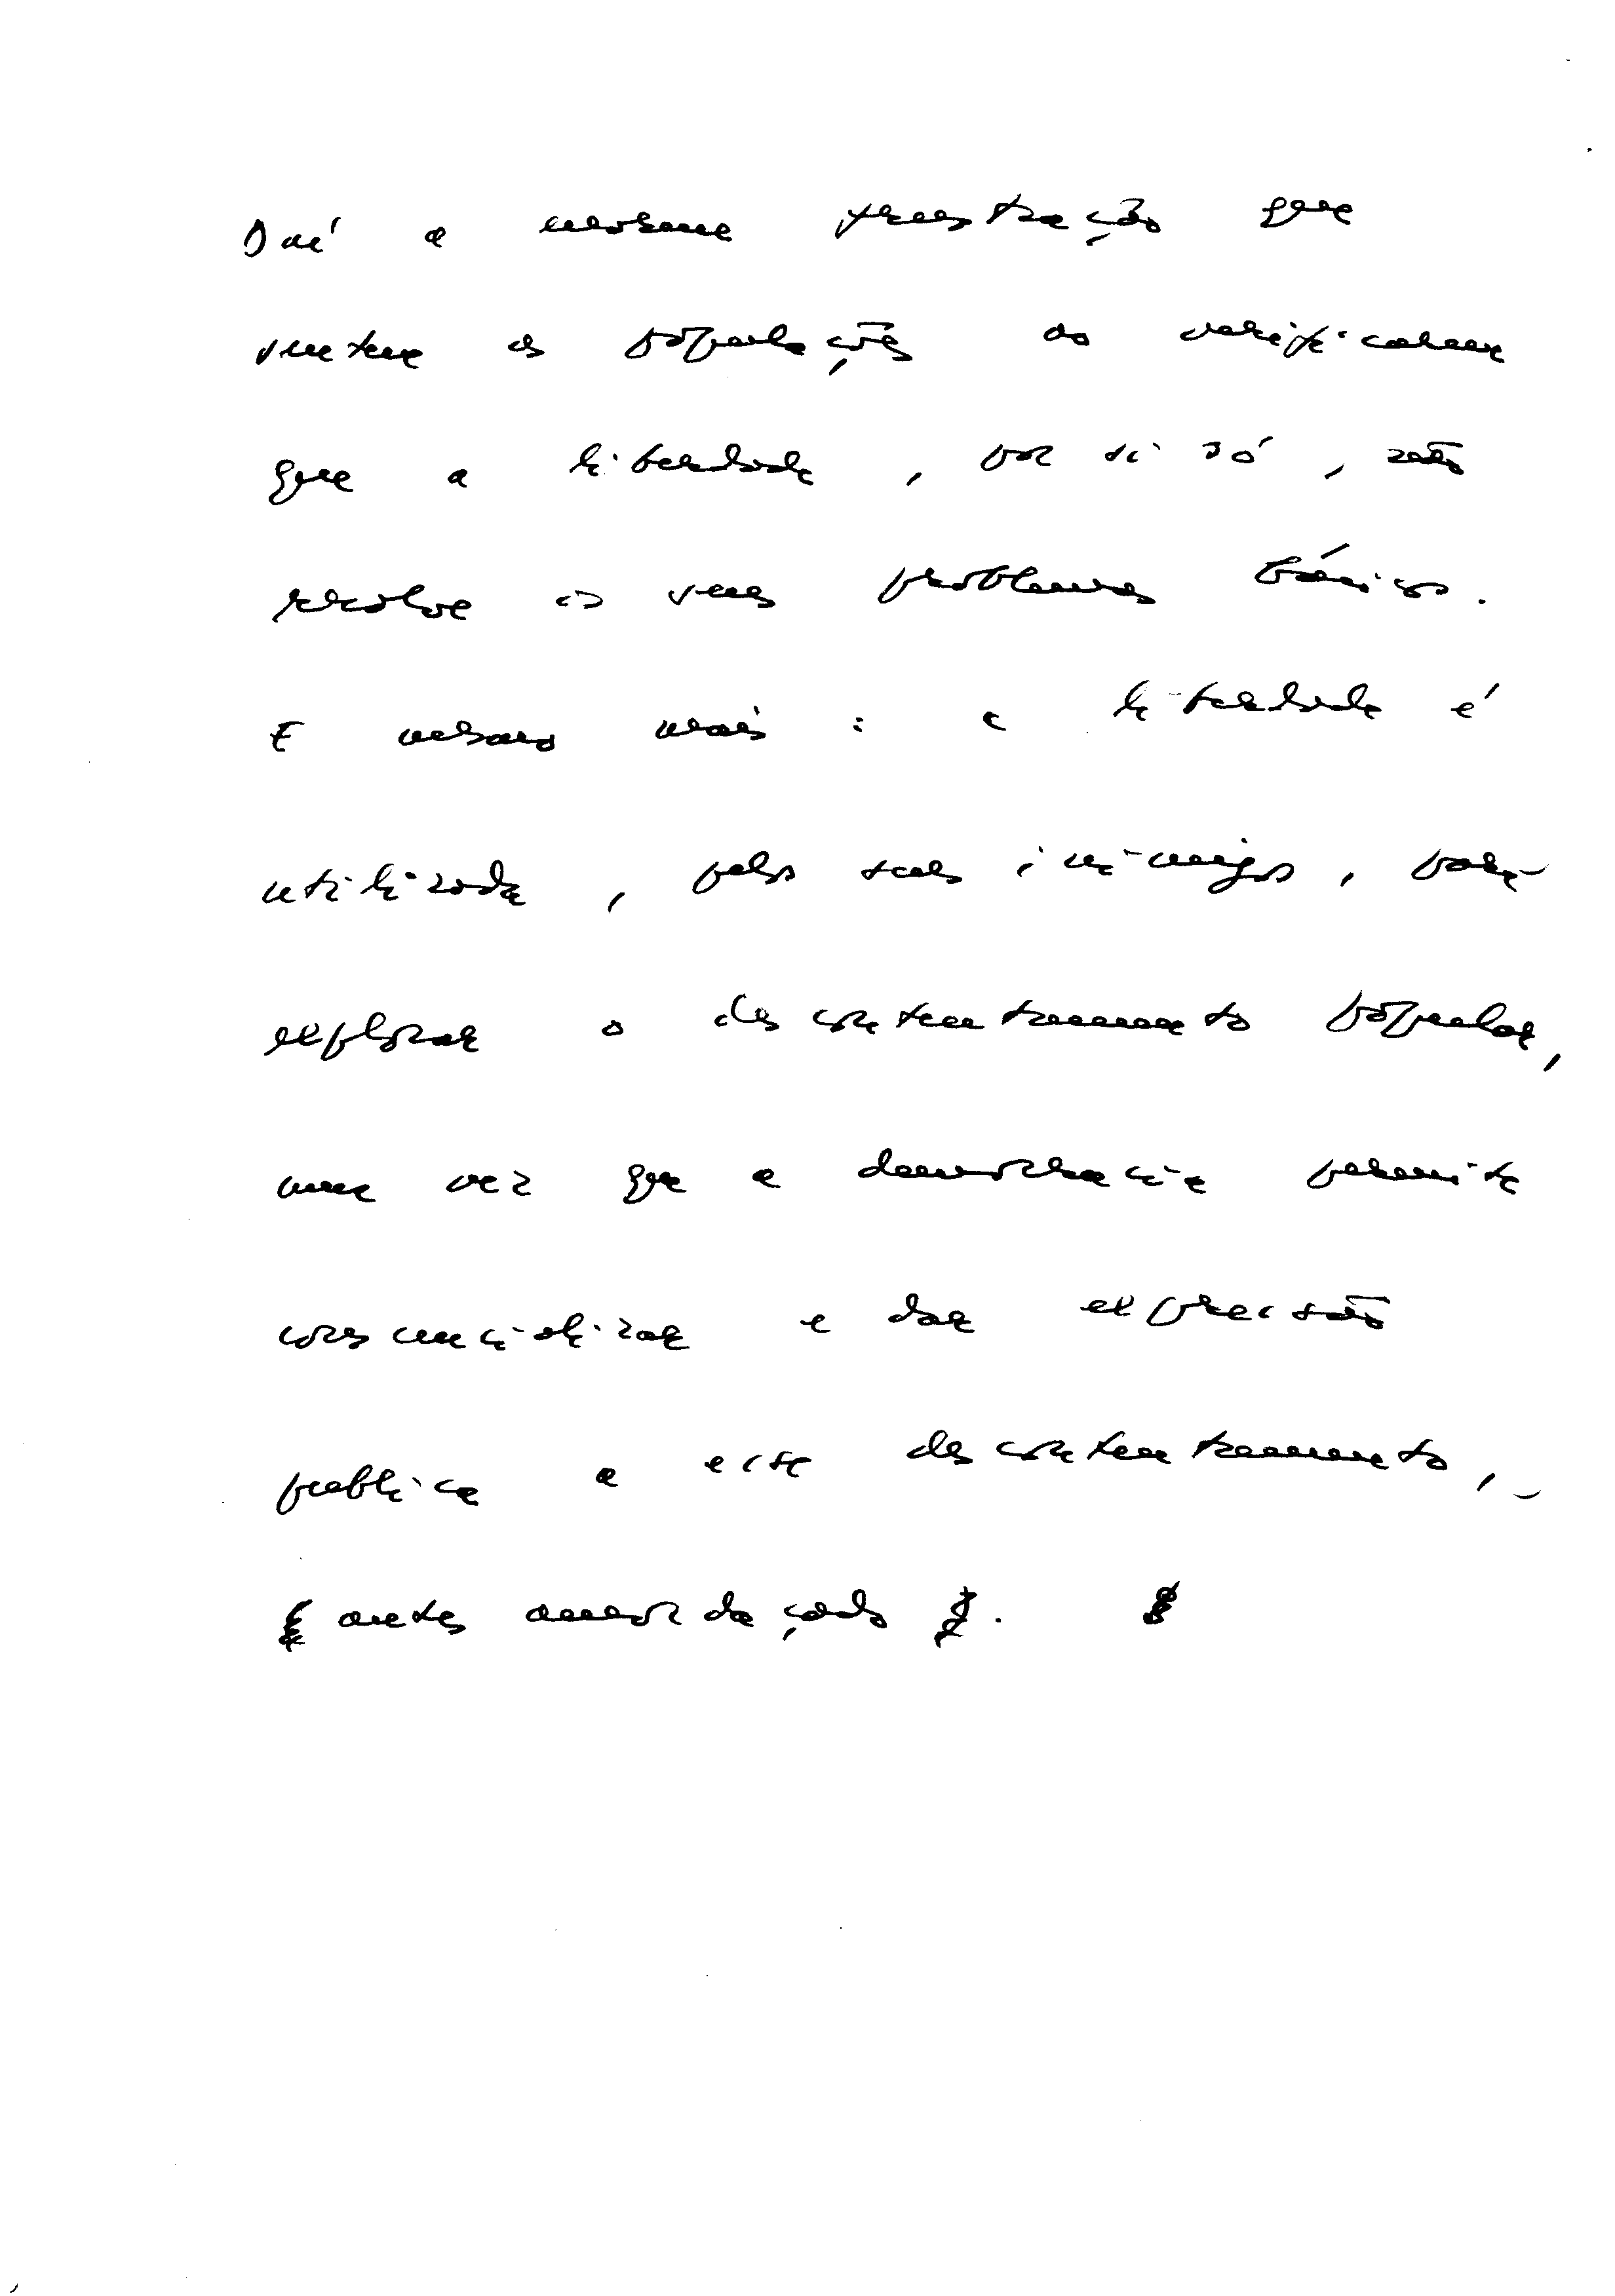 Daí a enorme frustração que
sentem as populações ao verificarem
que a liberdade, por si só, não
resolve os seus problemas básicos.
E mesmo mais: a liberdade é
utilizada, pelos seus inimigos, para
explorar o descontentamento popular,
uma vez que a democracia permite
consciencializar e dar expressão
pública a esse descontentamento,
antes amordaçado.